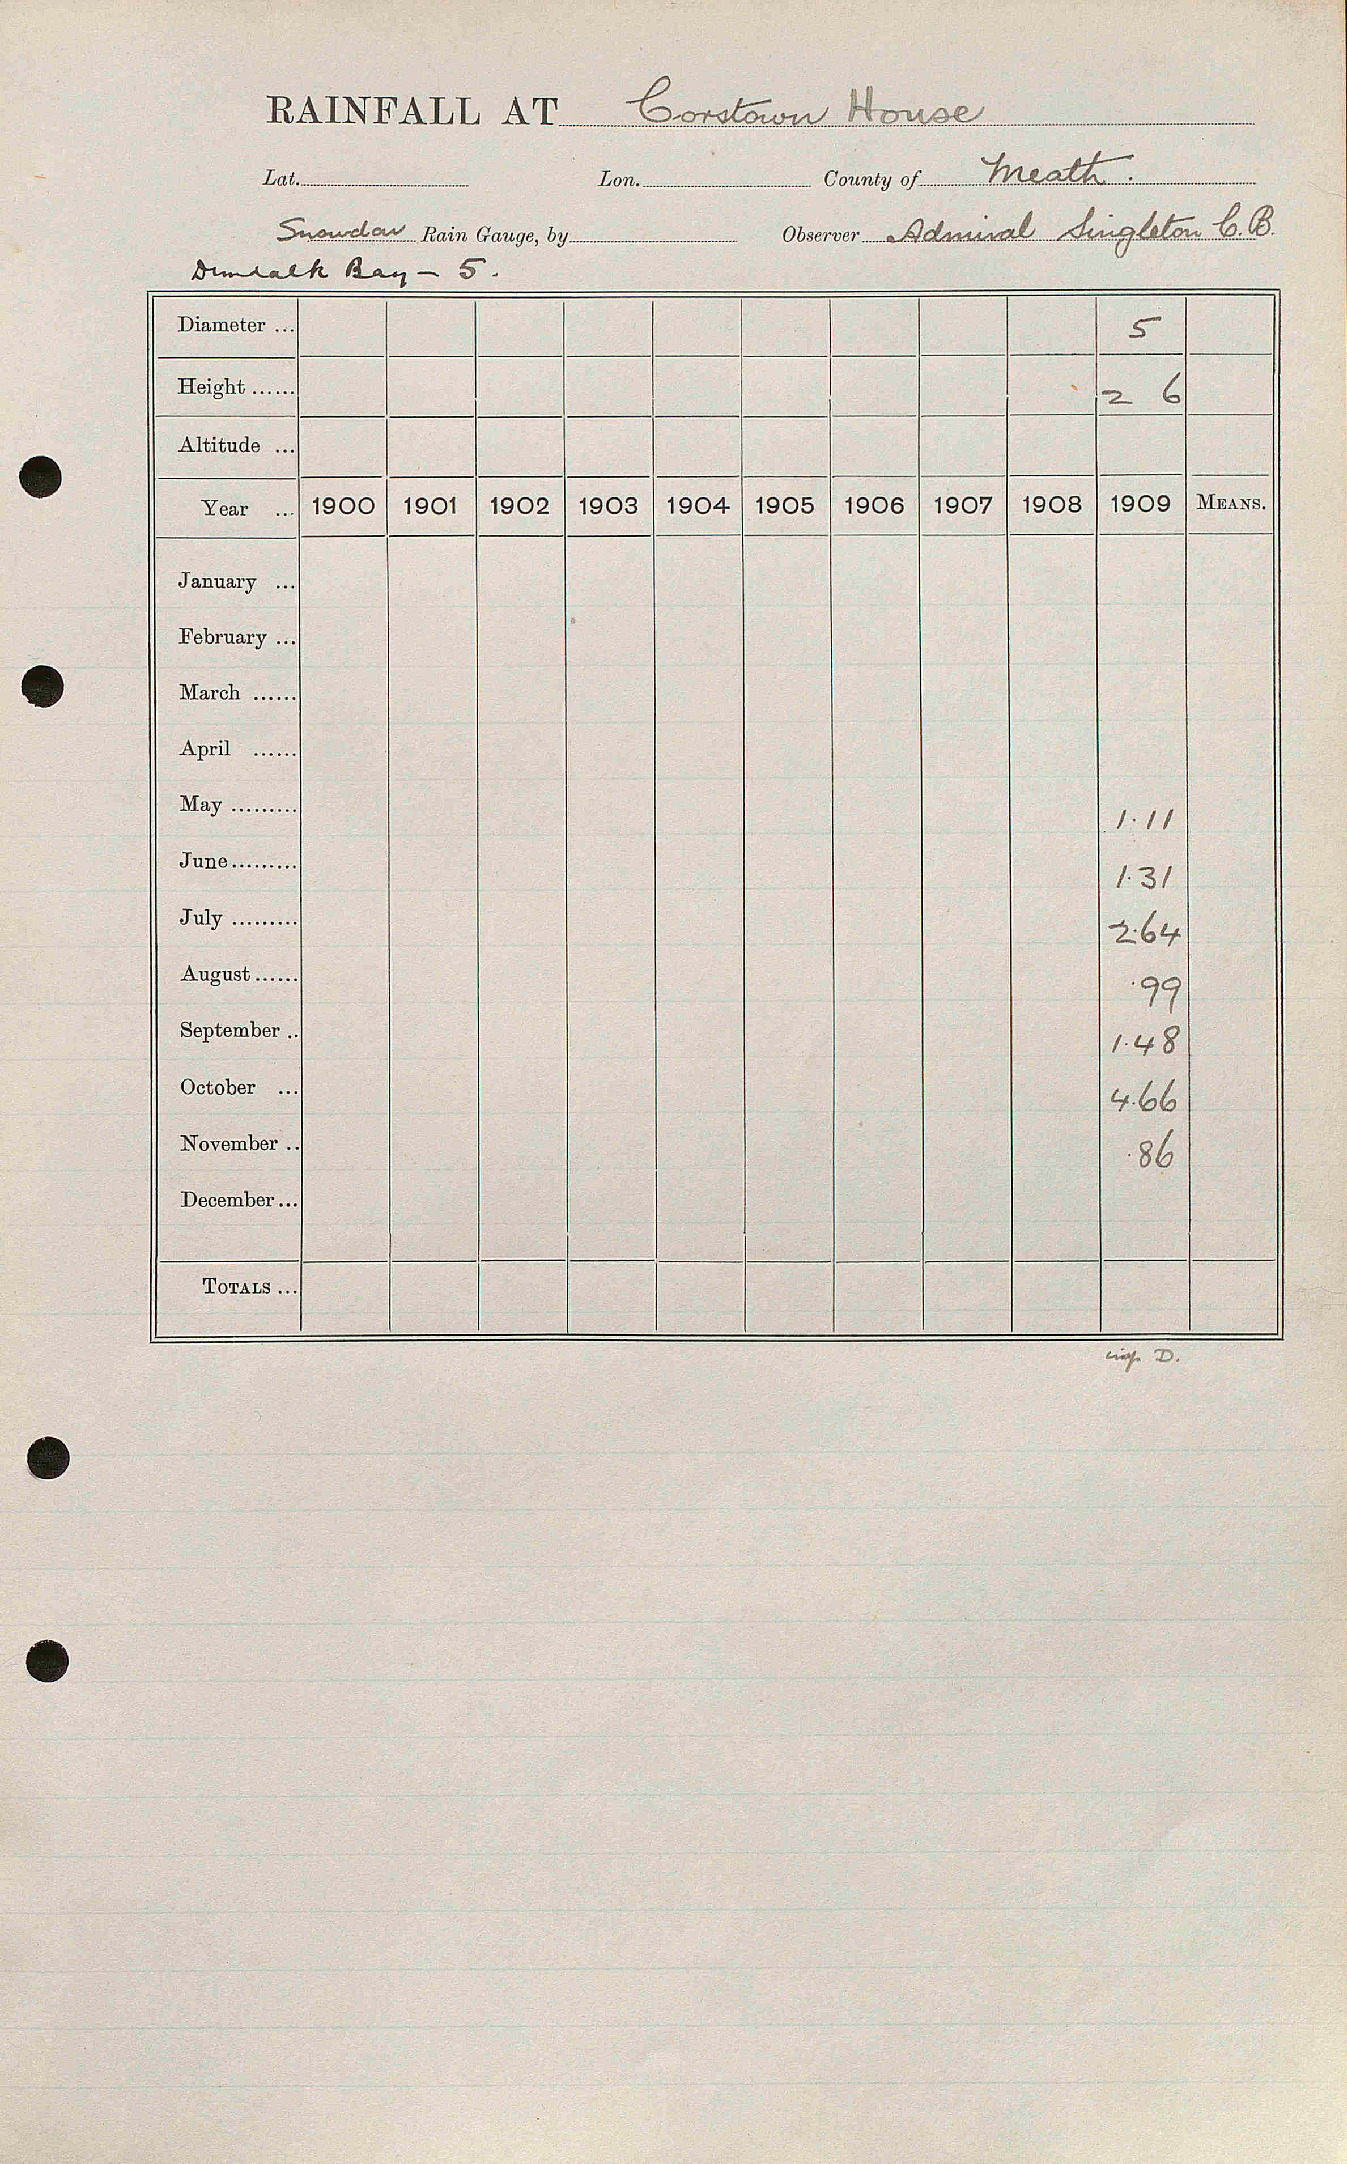 RAINFALL AT Corstown House
Lat. Lon. County of Meath.
Snowdon Rain Gauge, by Observer Admiral Singleton C.B.
Dundalk Bay – 5.
Diameter ... 5
Height ...... 2 6
Altitude ...
Year ... 1900 1901 1902 1903 1904 1905 1906 1907 1908 1909 MEANS.
January ...
February ...
March ......
April ......
May ......... 1.11
June......... 1.31
July ......... 2.64
August ...... .99
September .. 1.48
October ... 4.66
November .. .86
December ...
TOTALS ...
D.